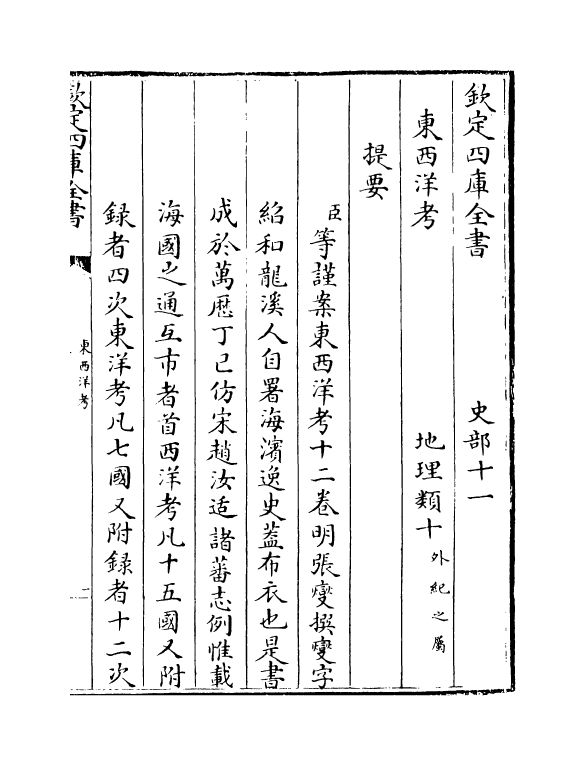 欽定四庫全書　史部十一
東西洋考　地理類十外紀之屬
提要
臣等謹案東西洋考十二卷明張爕撰爕字
紹和龍溪人自署海濱逸史葢布衣也是書
成於萬厯丁已仿宋趙汝适諸蕃志例惟載
海國之通互市者首西洋考凡十五國又附
録者四次東洋考凡七國又附録者十二次
欽定四庫全書
東西洋考